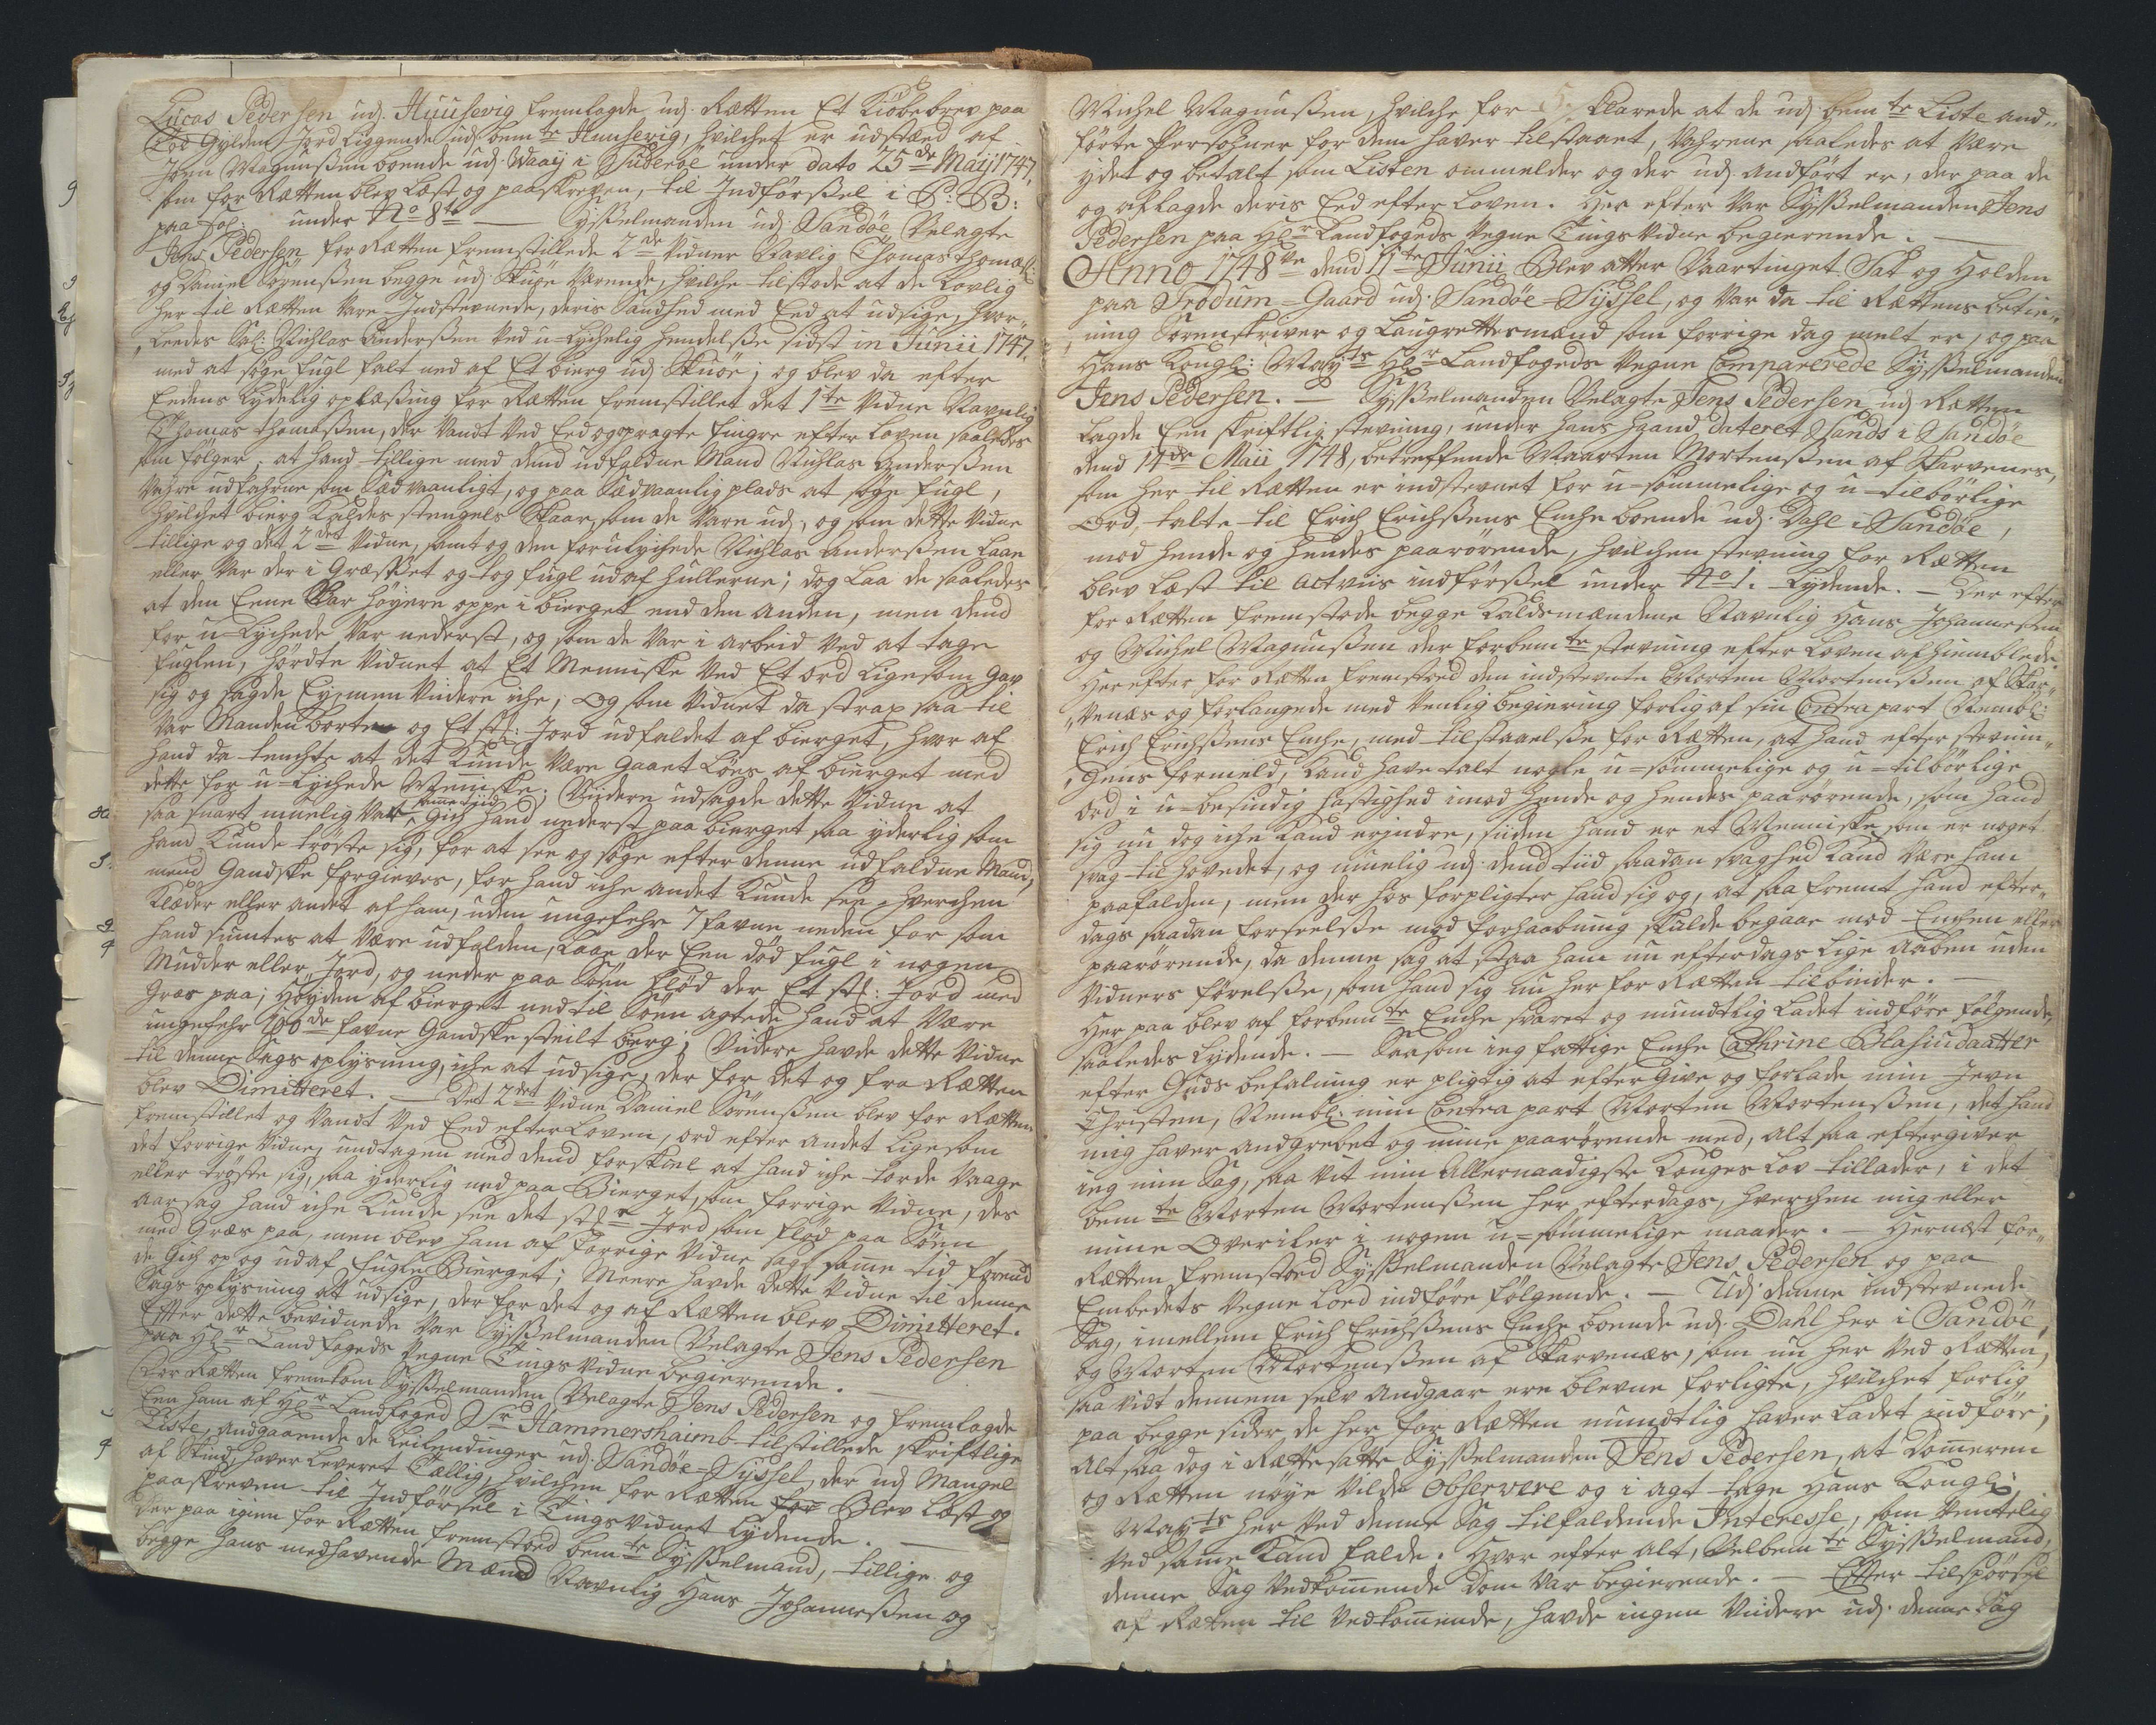 Lucas Pedersen udj Huusevig fremlagde udj Rætten Et Kiöbebrev paa
Gylden Jord liggende udj bemte Huusevig, hvilchet er udstæd af
Joen Magnussen boende udj Waay i Suderöe under dato 25de Maij 1747.
som for Rætten blev læst og paaskreven, til Indförssel i P: B:
paa fol: under No 8te — Sysselmanden udj Sandöe Velagte
Jens Pedersen for Rætten fremstillede 2de Vidner Navnlig Thomas Thomass:
og Daniel Sörenssen begge udj Skuöe værende, hvilche tilstode at de Lovlig
her til Rætten vare Indstevnede, deris Sandhed med Eed at udsige, hvor„
„ledes Sal: Nichlas Anderssen ved u-lychelig hendelsse sidst in Junii 1747.
med at söge fugl falt ned af Et bierg udj Skuöe; og blev da efter
Eedens tydelig oplæsing for Rætten fremstillet det 1te Vidne Navnlig
Thomas Thomassen, der vandt ved Eed og opragte fingre efter loven saaledes
som fölger, at hand tillige med dend udfaldne Mand Nichlas Anderssen
vahre udfahrne som sædvaanligt, og paa sædvaanlig plads at söge fugl,
hvilchet bierg Kaldes stengels Skaar, som de vare udj, og som dette Vidne
tillige og det 2det Vidne, samt og den forulychede Nichlas Anderssen laae
eller var der i Græsset og tog fugl ud af hullerne; dog laa de saaledes
at den Eene var höyere oppe i bierget end den anden, men dend
for u-lychede var nederst, og som de var i arbeid ved at tage
fuglen, hördte Vidnet at Et Menniske ved Et ord ligesom gav
sig og sagde Ey, men viidere iche; Og som Vidnet da strax saa til
var Manden borte og Et st: Jord udfaldet af bierget, hvor af
hand da tenchte at det Kunde være gaaet löes af bierget med
dette for u-lychede Menniske; Viidere udsagde dette Vidne at
saa snart muelig var samme tiid gich hand nederst paa bierget saa yderlig som
hand Kunde tröste sig, for at see og söge efter denne udfaldne Mand,
mend gandske forgieves, for hand iche andet Kunde see hverchen
Klæder eller andet af ham, uden ungefehr 7 favne neden for som
hand syntes at være udfalden, laae der Een död fugl i nogen
Mudder eller Jord, og neder paa Söen flöd der Et st: Jord med
græs paa; Höyden af bierget ned til Söen agtede hand at være
ungefehr 100de favne gandske steilt berg; Viidere havde dette Vidne
til denne Sags oplysning, iche at udsige, der for det og fra Rætten
blev Dimitteret. — Det 2det Vidne Daniel Sörenssen blev for Rætten
fremstillet og vandt ved Eed efter Loven, ord efter andet ligesom
det forrige Vidne, undtagen med dend forskiæl at hand iche torde vaage
eller tröste sig, saa yderlig ned paa Bierget, som forrige Vidne, des
aarsag hand iche Kunde see det st: Jord som flöd paa Söen
med græs paa, men blev ham af forrige Vidne sagt samme tid forend
de gich op og ud af fugle Bierget; Meere havde dette Vidne til denne
Sags oplysning at udsige, der for det og af Rætten blev Dimitteret.
Efter dette bevidnede var Sysselmanden Velagte Jens Pedersen
paa Hr Landfogeds vegne Tings Vidne begierende. —
For Rætten fremkom Sysselmanden Velagte Jens Pedersen og fremlagde
Een ham af Hr Landfoged Sr Hammershaimb tilstillede skriftlige
Liste, andgaaende de leilendinger udj Sandöe-Sÿssel, der udj Mangel
af Skind, haver leveret Tællig, hvilchen for Rætten for Blev læst og
paaskreven til Indförsel i Tings Vidnet lydende. —
Der paa igien for Rætten fremstoed bemte Sysselmand, tillige og
begge hans medhavende Mænd Navnlig Hans Johannessen og
Michel Magnussen, hvilche for Klarede at de udj bemte Liste and„
förte Persohner for dem haver tilstaaet, Vahrene saaledes at være
ydet og betalt som Listen ommelder og der udj andfört er, der paa de
og aflagde deris Eed efter loven. Her efter var Sysselmanden Jens
Pedersen paa Hr Landfogeds vegne Tings Vidne begierende. —
Anno 1748ve dend 11te Junii Blev atter Vaartinget Sat og holden
paa Trödum-Gaard udj Sandöe-Sÿssel, og var da til Rættens betie„
„ning Sorenskriver og Laugrettesmænd som forrige dag melt er, og paa
Hans Kongl: Mayts Hr Landfogeds Vegne Comparerede Sysselmanden
Jens Pedersen. — Sysselmanden Velagte Jens Pedersen udj Rætten
lagde Een skriftlig stevning, under hans haand dateret Sands i Sandöe
dend 14de Maii 1748, betreffende Maarten Mortenssen af Skarvenes,
som her til Rætten er indstevnet for u-sömmelige og u-tilbörlige
Ord, talte til Erich Erichssens Enche boende udj Dahl i Sandöe,
mod hende og hendes paarörende, hvilchen stevning for Rætten
blev læst til actviis indförssel under No 1. lydende. — Der efter
for Rætten fremstode begge Kaldsmændene Navnlig Hans Johannessen
og Michel Magnussen der forbemte stevning efter loven afhiemblede.
Her efter for Rætten fremstoed den indstevnte Morten Mortenssen af Skar„
„venæs og forlangede med venlig begiering forlig af sin Contrapart Nembl:
Erich Erichssens Enche, med tilstaaelsse for Rætten, at hand efter stevnin„
„gens formeld, Kand have talt nogle u-sömmelige og u-tilbörlige
ord i u-besindig hastighed imod hende og hendes paarörende, som hand
sig nu dog iche Kand erindre, siiden hand er et Menniske som er noget
svag til hovedet, og muelig udj dend tiid saadan svaghed Kand være ham
paafalden, men der hos forpligter hand sig og, at saa fremt hand efter„
dags saadan forseelsse mod forhaabning skulde begaae mod Enchen eller
paarörende, da denne sag at staa ham nu efterdags lige aaben uden
Vidners förelsse, som hand sig nu her for Rætten tilbinder. —
Her paa blev af forbemte Enche svaret og mundtlig ladet indföre fölgende,
saaledes lydende. — Saasom ieg fattige Enche Cathrine Blasiudaatter
efter Guds befalning er pligtig at efter give og forlade min Jevn
Christen, Nembl: min Contrapart Morten Mortenssen, det hand
mig haver andgrebet og mine paarörende med, alt saa eftergiver
ieg min Sag, saa vit min Allernaadigste Konges Lov tillader, i det
bemte Morten Mortenssen her efterdags, hverchen mig eller
mine Overiler i nogen u-sömmelige maader. — Hernæst for„
Rætten fremstoed Sysselmanden Velagte Jens Pedersen og paa
Embedets Vegne loed indföre fölgende. — Udj denne indstevnede
Sag, imellem Erich Erichssens Enche boende udj Dahl her i Sandöe,
og Morten Mortenssen af Skarvenæs, som nu her ved Rætten,
saa vidt dennem selv andgaar ere blevne forligte, hvilchet forlig
paa begge sider de her for Rætten mundtlig haver ladet indföre;
Alt saa dog i Rættesatte Sysselmanden Jens Pedersen, at Dommeren
og Rætten nöye vilde Observere og i agt tage Hans Kongl:
Mayts her ved denne Sag tilfaldende Interesse, som ventelig
ved samme Kand falde. Hvor efter alt, Velbemte Sysselmand,
denne Sag Vedkommende Dom var begierende. — Efter tilspörsel
af Rætten til Vedkommende, havde ingen Viidere udj denne Sag